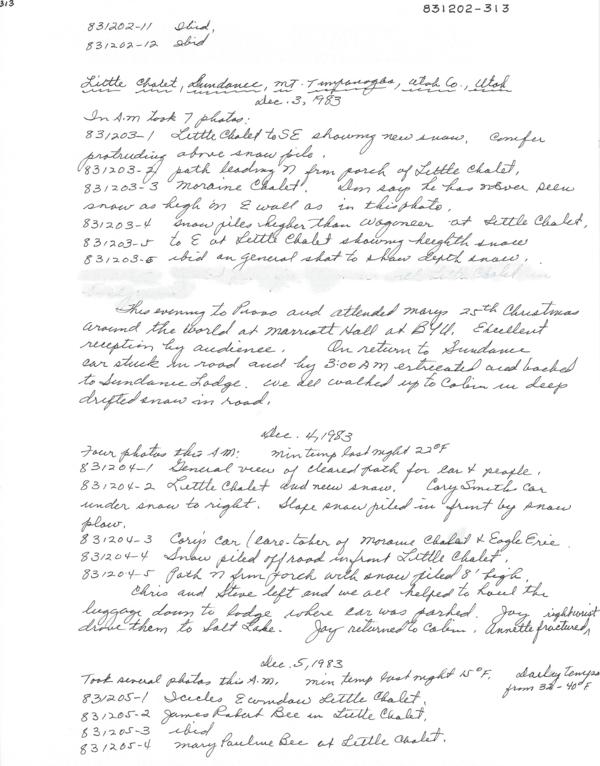 313
831202-313
831202-11 Ibid,
831202-12 ibid
Little Chalet, Sundance, Mt. Timpanogos, Utah Co., Utah
Dec. 3, 1983
In A.M took 7 photos:
831203-1 Little Chalet to SE showing new snow. Conifer
protruding above snow pile.
831203-2 path leading N frm porch of Little Chalet,
831203-3 Moraine Chalet. Don says he has never seen
snow as high on E wall as in this photo.
831203-4 Snow piles higher than wagoneer at Little Chalet,
831203-5 to E at Little Chalet showing heighth snow
831203-6 ibid an general shot to show depth snow.
This evening to Provo and attended Marys 25th Christmas
around the world at Marriott Hall at BYU. Excellent
reception by audience. On return to Sundance
car stuck in road and by 3:00 AM extricated and backed
to Sundance Lodge. We all walked up to Cabin in deep
drifted snow in road.
Dec. 4, 1983
Four photos this A.M: min temp last night 22°F
831204-1 General view of cleared path for car & people.
831204-2 Little Chalet and new snow. Cory Smith car
under snow to right. Slope snow piled in front by snow
plow.
831204-3 Corys car (care-taker of Moraine Chalet & Eagle Erie
831204-4 Snow piled off road infront Little Chalet,
831204-5 Path N frm porch with snow piled 8' high,
Chris and Steve left and we all helped to haul the
luggage down to lodge where car was parked. Jay
drove them to Salt Lake. Jay returned to Cabin. Annette fractured
right wrist
Dec. 5, 1983
Took several photos this A.M. min temp last night 15°F. Dailey temps
from 32-40°F
831205-1 Icicles E window Little Chalet,
831205-2 James Robert Bee in Little Chalet,
831205-3 ibid
831205-4 Mary Pauline Bee at Little Chalet.